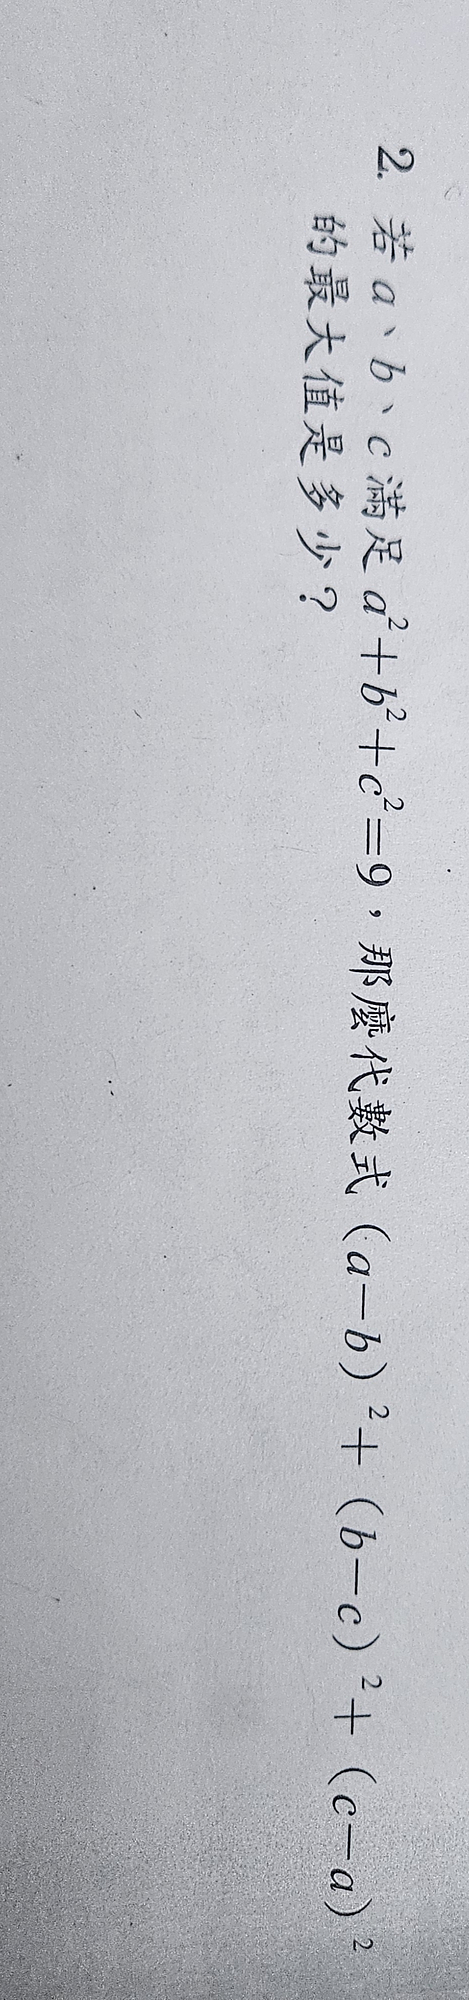 2. 若a、b、c滿足a²+b²+c²=9，那麼代數式(a-b)²+(b-c)²+(c-a)²
的最大值是多少？